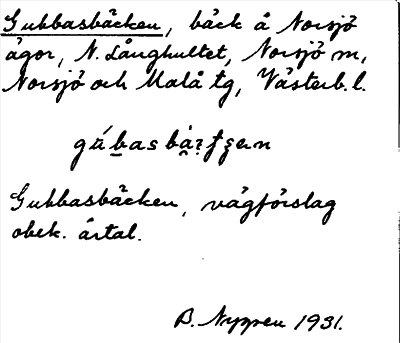 Gubbasbäcken, bäck å Norsjö
ägor, N. Långhultet, Norsjö m,
Norsjö och Malå tg, Västerb. l.
Gubbasbäcken, vägförslag
obek. årtal.
B. Nyppen 1931.